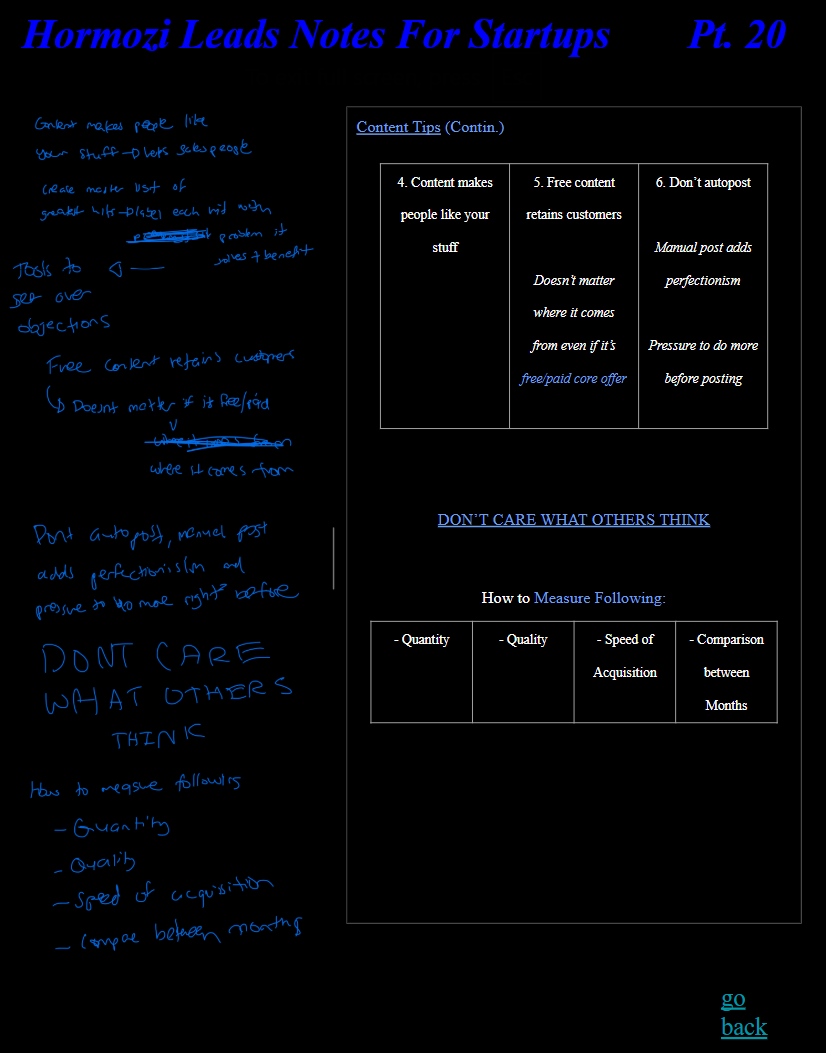 Hormozi Leads Notes For Startups Pt. 20
Content makes people like
your stuff → lets sales people
create master list of
greatest hits → label each with
problem it
solves + benefit
Tools to
get over
objections
Free content retains customers
Doesnt matter if it free/paid
where it comes from
Dont autopost, manual post
adds perfectionism and
pressure to do more right before
DONT CARE
WHAT OTHERS
THINK
How to measure following
- Quantity
- Quality
- Speed of acquisition
- Compare between months
Content Tips (Contin.)
4. Content makes
people like your
stuff
5. Free content
retains customers
Doesn't matter
where it comes
from even if it's
free/paid core offer
6. Don't autopost
Manual post adds
perfectionism
Pressure to do more
before posting
DON'T CARE WHAT OTHERS THINK
How to Measure Following:
- Quantity
- Quality
- Speed of
Acquisition
- Comparison
between
Months
go
back